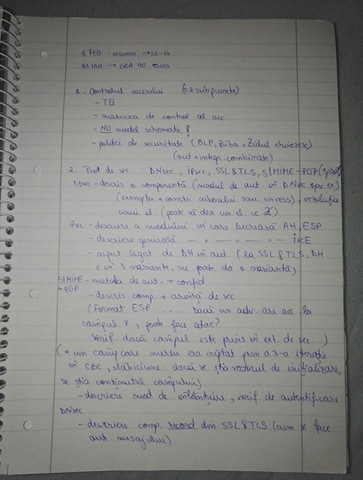 1 FEB - examen → 12-14
31 IAN → ORA 10 curs
1. Controlul accesului (2.3 subpuncte)
- TG
- matricea de control al acc
- NU model schematic !
- politici de securitate (BLP, Biba, Zidul chinezesc)
(aut + integr combinate)
2. Prot de sec : DNSsec, IPsec, SSL&TLS, S/MIME-PGP
DNSsec - descris o componentă (modul de aut. în DNSsec
(exemplu + constr. arborelui sau invers), rezoluția
unui el (poate să dea un el. ce
IPsec - descriere a mediului în care lucrează AH, ESP
- descriere generală — " — " — IKE
- suport legat de DH în aut (la SSL&TLS, DH
e în 3 variante, ne poate da o variantă)
S/MIME - metoda de aut. + confid
→PGP
- descris comp. + asum de sec
(format ESP ... Dacă un adv. are acc la
câmpul x, poate face atac?
Verif dacă câmpul este pus în ext de sec )
(* un câmp care mereu era criptat prin a 3-a iterație
în CBC, slăbiciune: dacă se știa vectorul de inițializare,
se știa conținutul câmpului)
- descriere mod de înlănțuire, verif. de autentificare
DNSsec
- descriere comp. record din SSL&TLS (cum se face
aut. mesajului)